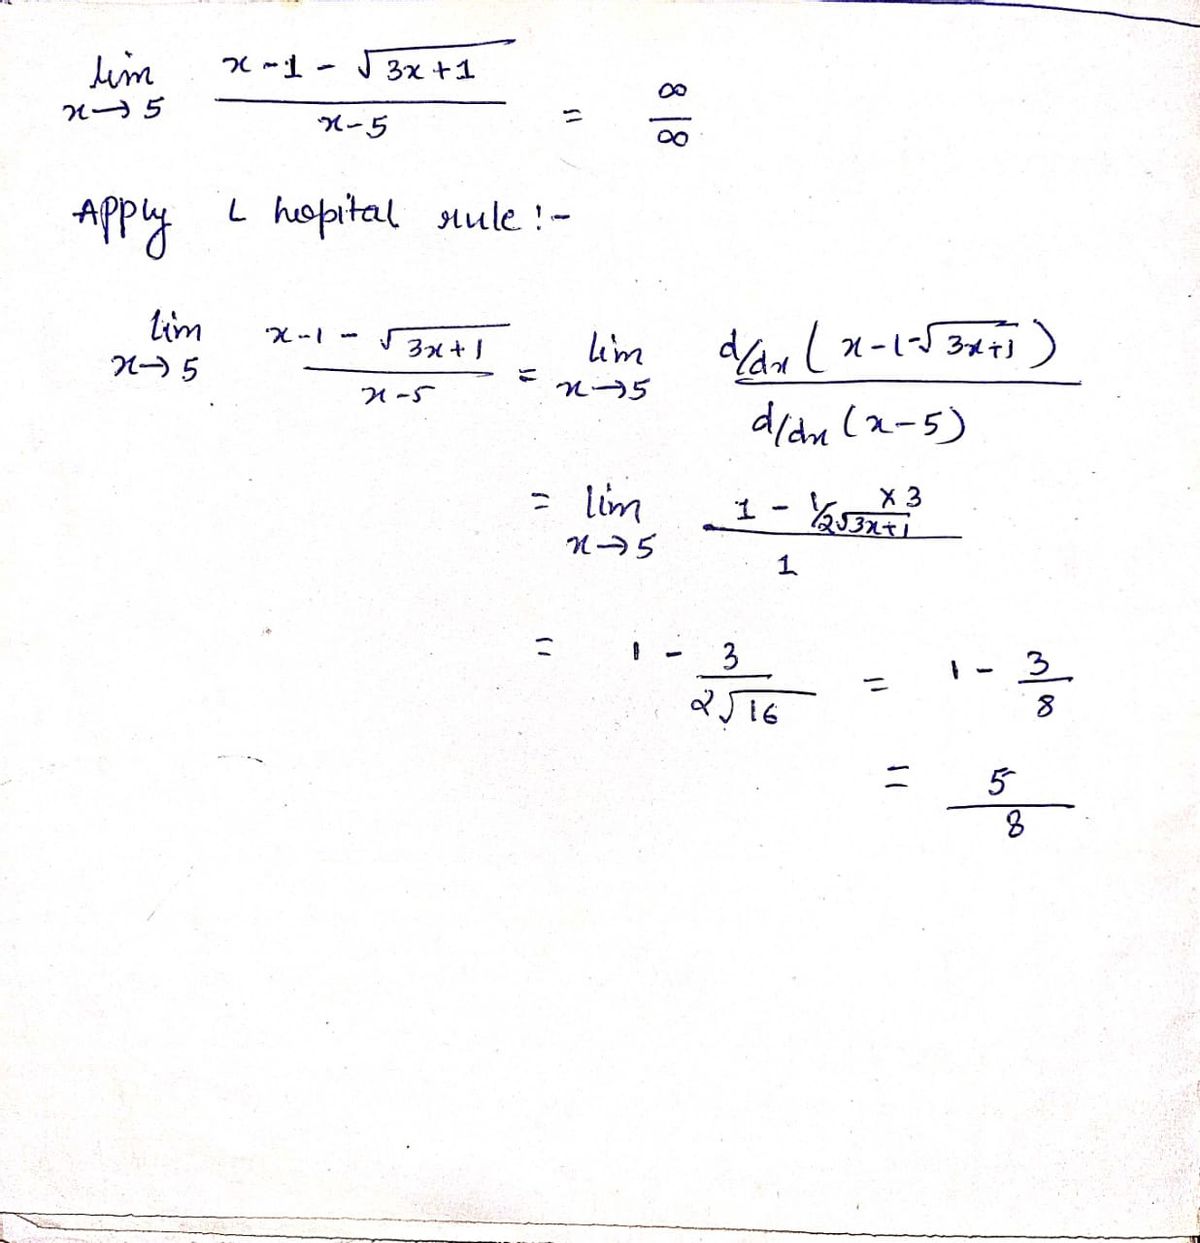 lim x→5 (x-1-√(3x+1))/(x-5) = ∞/∞
Apply L hopital rule :-
lim x→5 (x-1-√(3x+1))/(x-5) = lim x→5 (d/dx (x-1-√(3x+1)))/(d/dx (x-5))
= lim x→5 (1 - 1/2√(3x+1) × 3)/1
= 1 - 3/(2√16) = 1 - 3/8
= 5/8